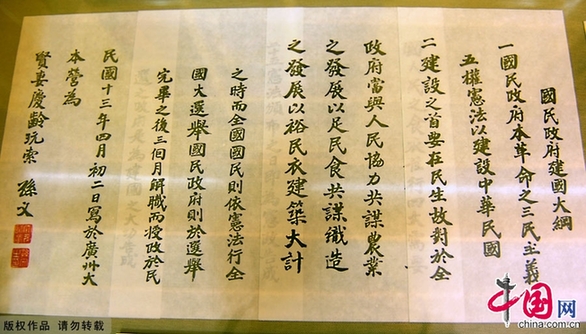 國民政府建國大綱
一國民政府本革命之三民主義
五權憲法以建設中華民國
二建設之首要在民生故對於全
政府當與人民協力共謀農業
之發展以足民食共謀織造
之發展以裕民衣建築大計
之時而全國國民則依憲法行全
國大選舉國民政府則於選舉
完畢之後三個月解職而授政於民
民國十三年四月初二日寫於廣州大
本營為
賢妻慶齡玩索 孫文
版权作品 请勿转载
中国网
china.com.cn